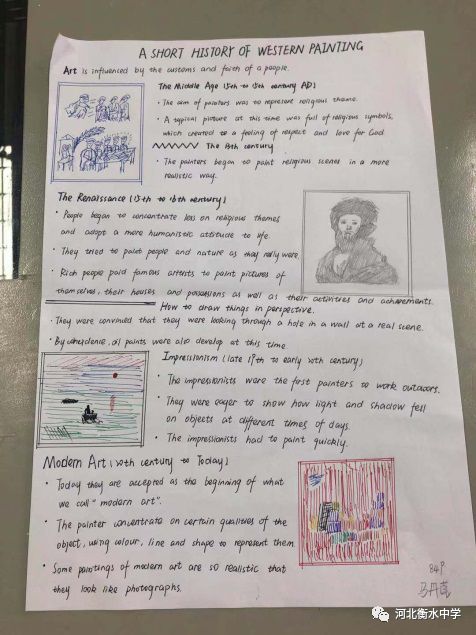 A SHORT HISTORY OF WESTERN PAINTING
Art is influenced by the customs and faith of a people.
The Middle Age (5th to 15th century AD)
· The aim of painters was to represent religious theme.
· A typical picture at this time was full of religious symbols,
which created to a feeling of respect and love for God
The 13th century
· The painters began to paint religious scenes in a more
realistic way.
The Renaissance (15th to 16th century)
· People began to concentrate less on religious themes
and adopt a more humanistic attitude to life.
· They tried to paint people and nature as they really were.
· Rich people paid famous artists to paint pictures of
themselves, their houses and possessions as well as their activities and achievements.
How to draw things in perspective.
· They were convinced that they were looking through a hole in a wall at a real scene.
· By coincidence, oil paints were also develop at this time.
Impressionism (late 19th to early 20th century)
· The impressionists were the first painters to work outdoors.
· They were eager to show how light and shadow fell
on objects at different times of days.
· The impressionists had to paint quickly.
Modern Art (20th century to Today)
· Today they are accepted as the beginning of what
we call "modern art".
· The painter concentrate on certain qualities of the
object, using colour, line and shape to represent them
· Some paintings of modern art are so realistic that
they look like photographs.
849
马丹
河北衡水中学